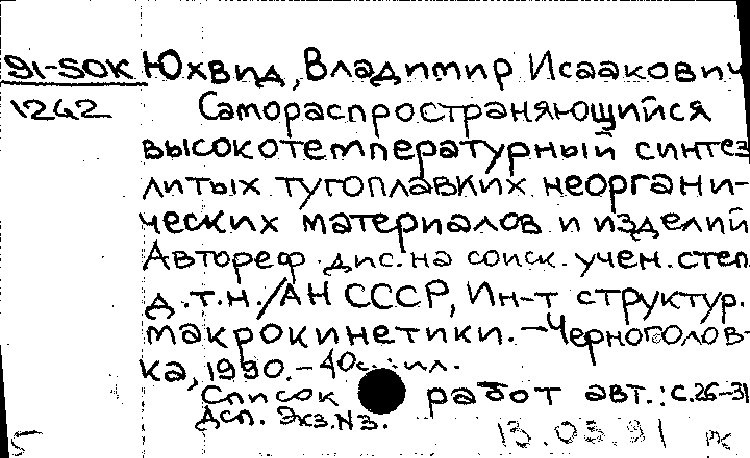 91-50К Юхвид, Владимир Исаакович
1242 Самораспространяющийся
высокотемпературный синтез
литых тугоплавких неоргани-
ческих материалов и изделий
Автореф. дис. на соиск. учен. степ
д.т.н./АН СССР, Ин-т структур.
макрокинетики. - Черноголов-
ка, 1990. - 40с.: ил.
Список работ авт.: с. 26-31
Дсп. Экз. N3.
5 13.03.91